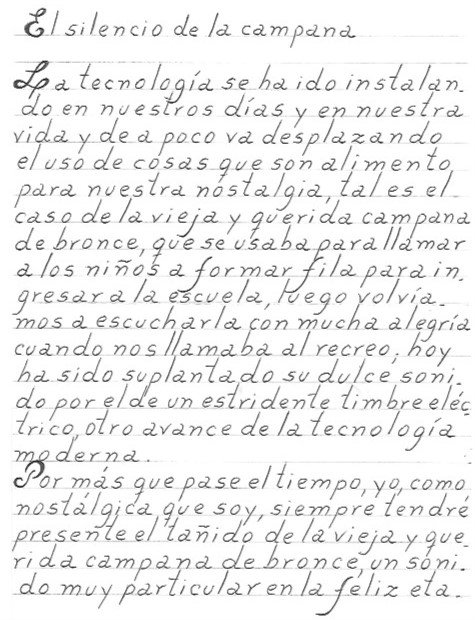 El silencio de la campana
La tecnología se ha ido instalan-
do en nuestros días y en nuestra
vida y de a poco va desplazando
el uso de cosas que son alimento
para nuestra nostalgia, tal es el
caso de la vieja y querida campana
de bronce, que se usaba para llamar
a los niños a formar fila para in-
gresar a la escuela, luego volvía-
mos a escucharla con mucha alegría
cuando nos llamaba al recreo; hoy
ha sido suplantado su dulce soni-
do por el de un estridente timbre eléc-
trico, otro avance de la tecnología
moderna.
Por más que pase el tiempo, yo, como
nostálgica que soy, siempre tendré
presente el tañido de la vieja y que-
rida campana de bronce, un soni-
do muy particular en la feliz eta.